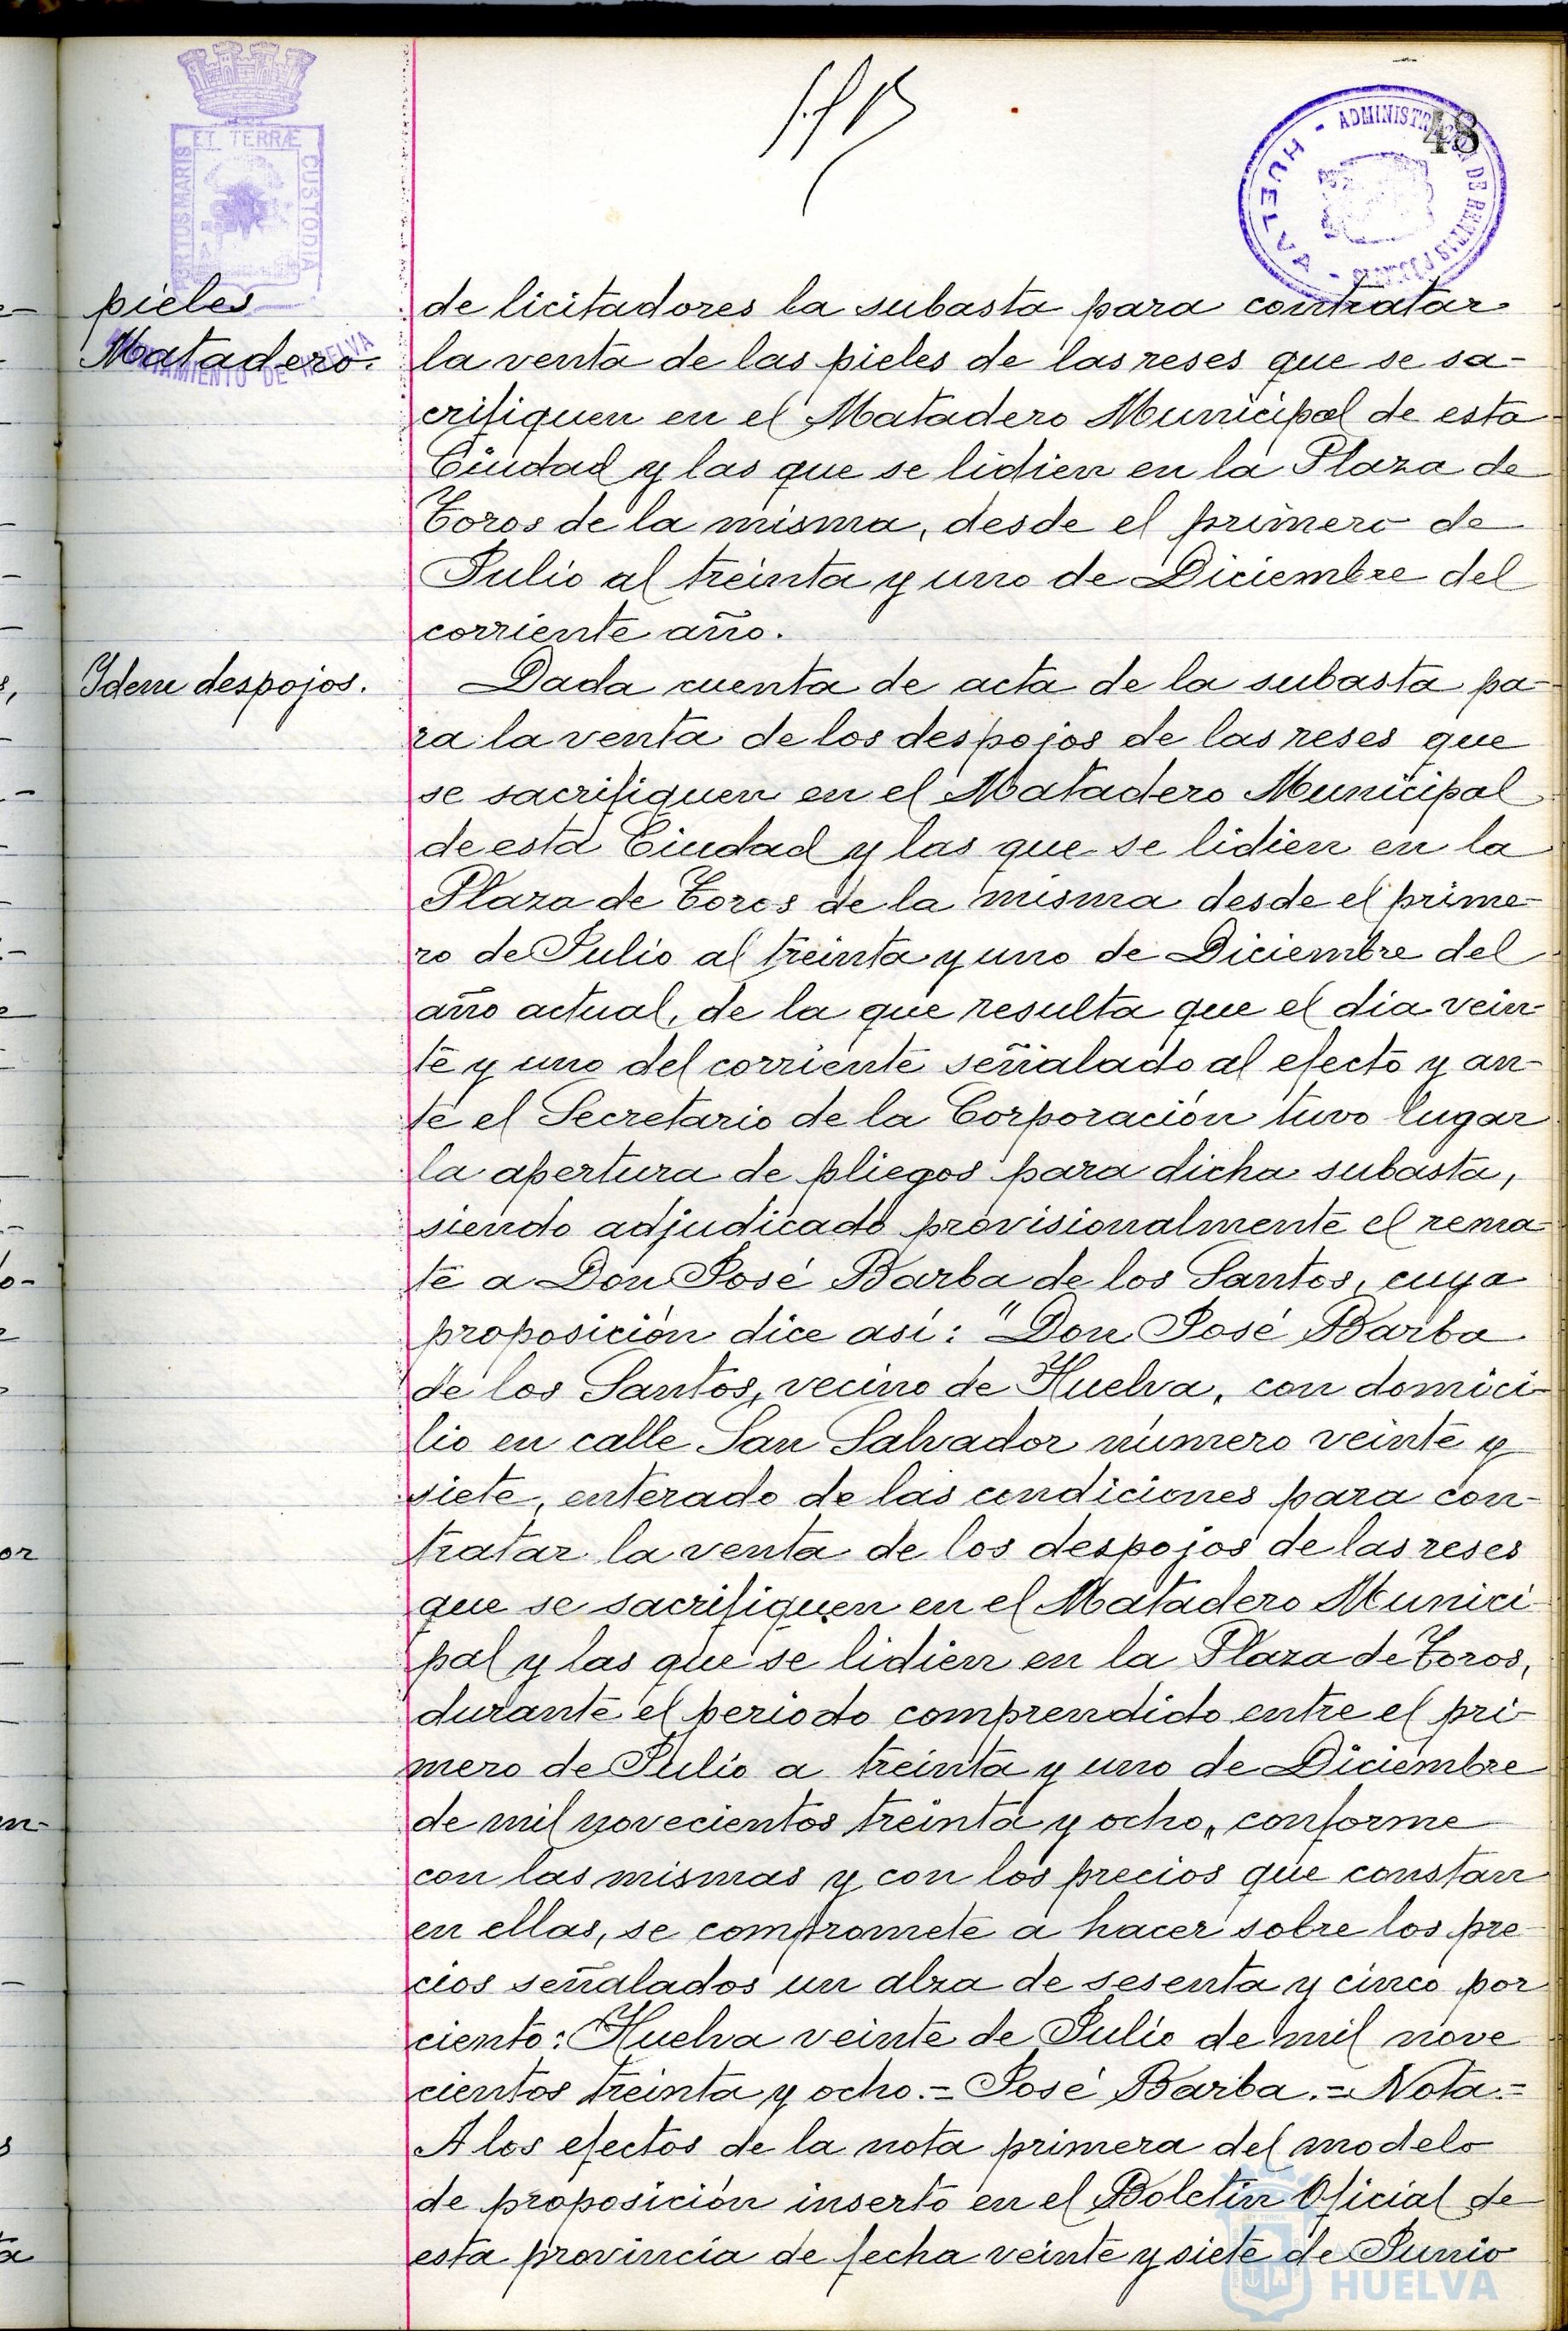 48
ADMINISTRACION DE RENTAS PUBLICAS - HUELVA -
ET TERRÆ
CUSTODIA
PORTUS MARIS
AYUNTAMIENTO DE HUELVA
pieles
Matadero.
de licitadores la subasta para contratar
la venta de las pieles de las reses que se sa-
crifiquen en el Matadero Municipal de esta
Ciudad y las que se lidien en la Plaza de
Toros de la misma, desde el primero de
Julio al treinta y uno de Diciembre del
corriente año.
Idem despojos.
Dada cuenta de acta de la subasta pa-
ra la venta de los despojos de las reses que
se sacrifiquen en el Matadero Municipal
de esta Ciudad y las que se lidien en la
Plaza de Toros de la misma desde el prime-
ro de Julio al treinta y uno de Diciembre del
año actual, de la que resulta que el dia vein-
te y uno del corriente señalado al efecto y an-
te el Secretario de la Corporación tuvo lugar
la apertura de pliegos para dicha subasta,
siendo adjudicado provisionalmente el rema-
te a Don José Barba de los Santos, cuya
proposición dice asi: "Don José Barba
de los Santos, vecino de Huelva, con domici-
lio en calle San Salvador número veinte y
siete, enterado de las condiciones para con-
tratar la venta de los despojos de las reses
que se sacrifiquen en el Matadero Munici-
pal y las que se lidien en la Plaza de Toros,
durante el periodo comprendido entre el pri-
mero de Julio a treinta y uno de Diciembre
de mil novecientos treinta y ocho, conforme
con las mismas y con los precios que constan
en ellas, se compromete a hacer sobre los pre-
cios señalados un alza de sesenta y cinco por
ciento: Huelva veinte de Julio de mil nove
cientos treinta y ocho.= José Barba.= Nota.=
A los efectos de la nota primera del modelo
de proposición inserto en el Boletin Oficial de
esta provincia de fecha veinte y siete de Junio
HUELVA